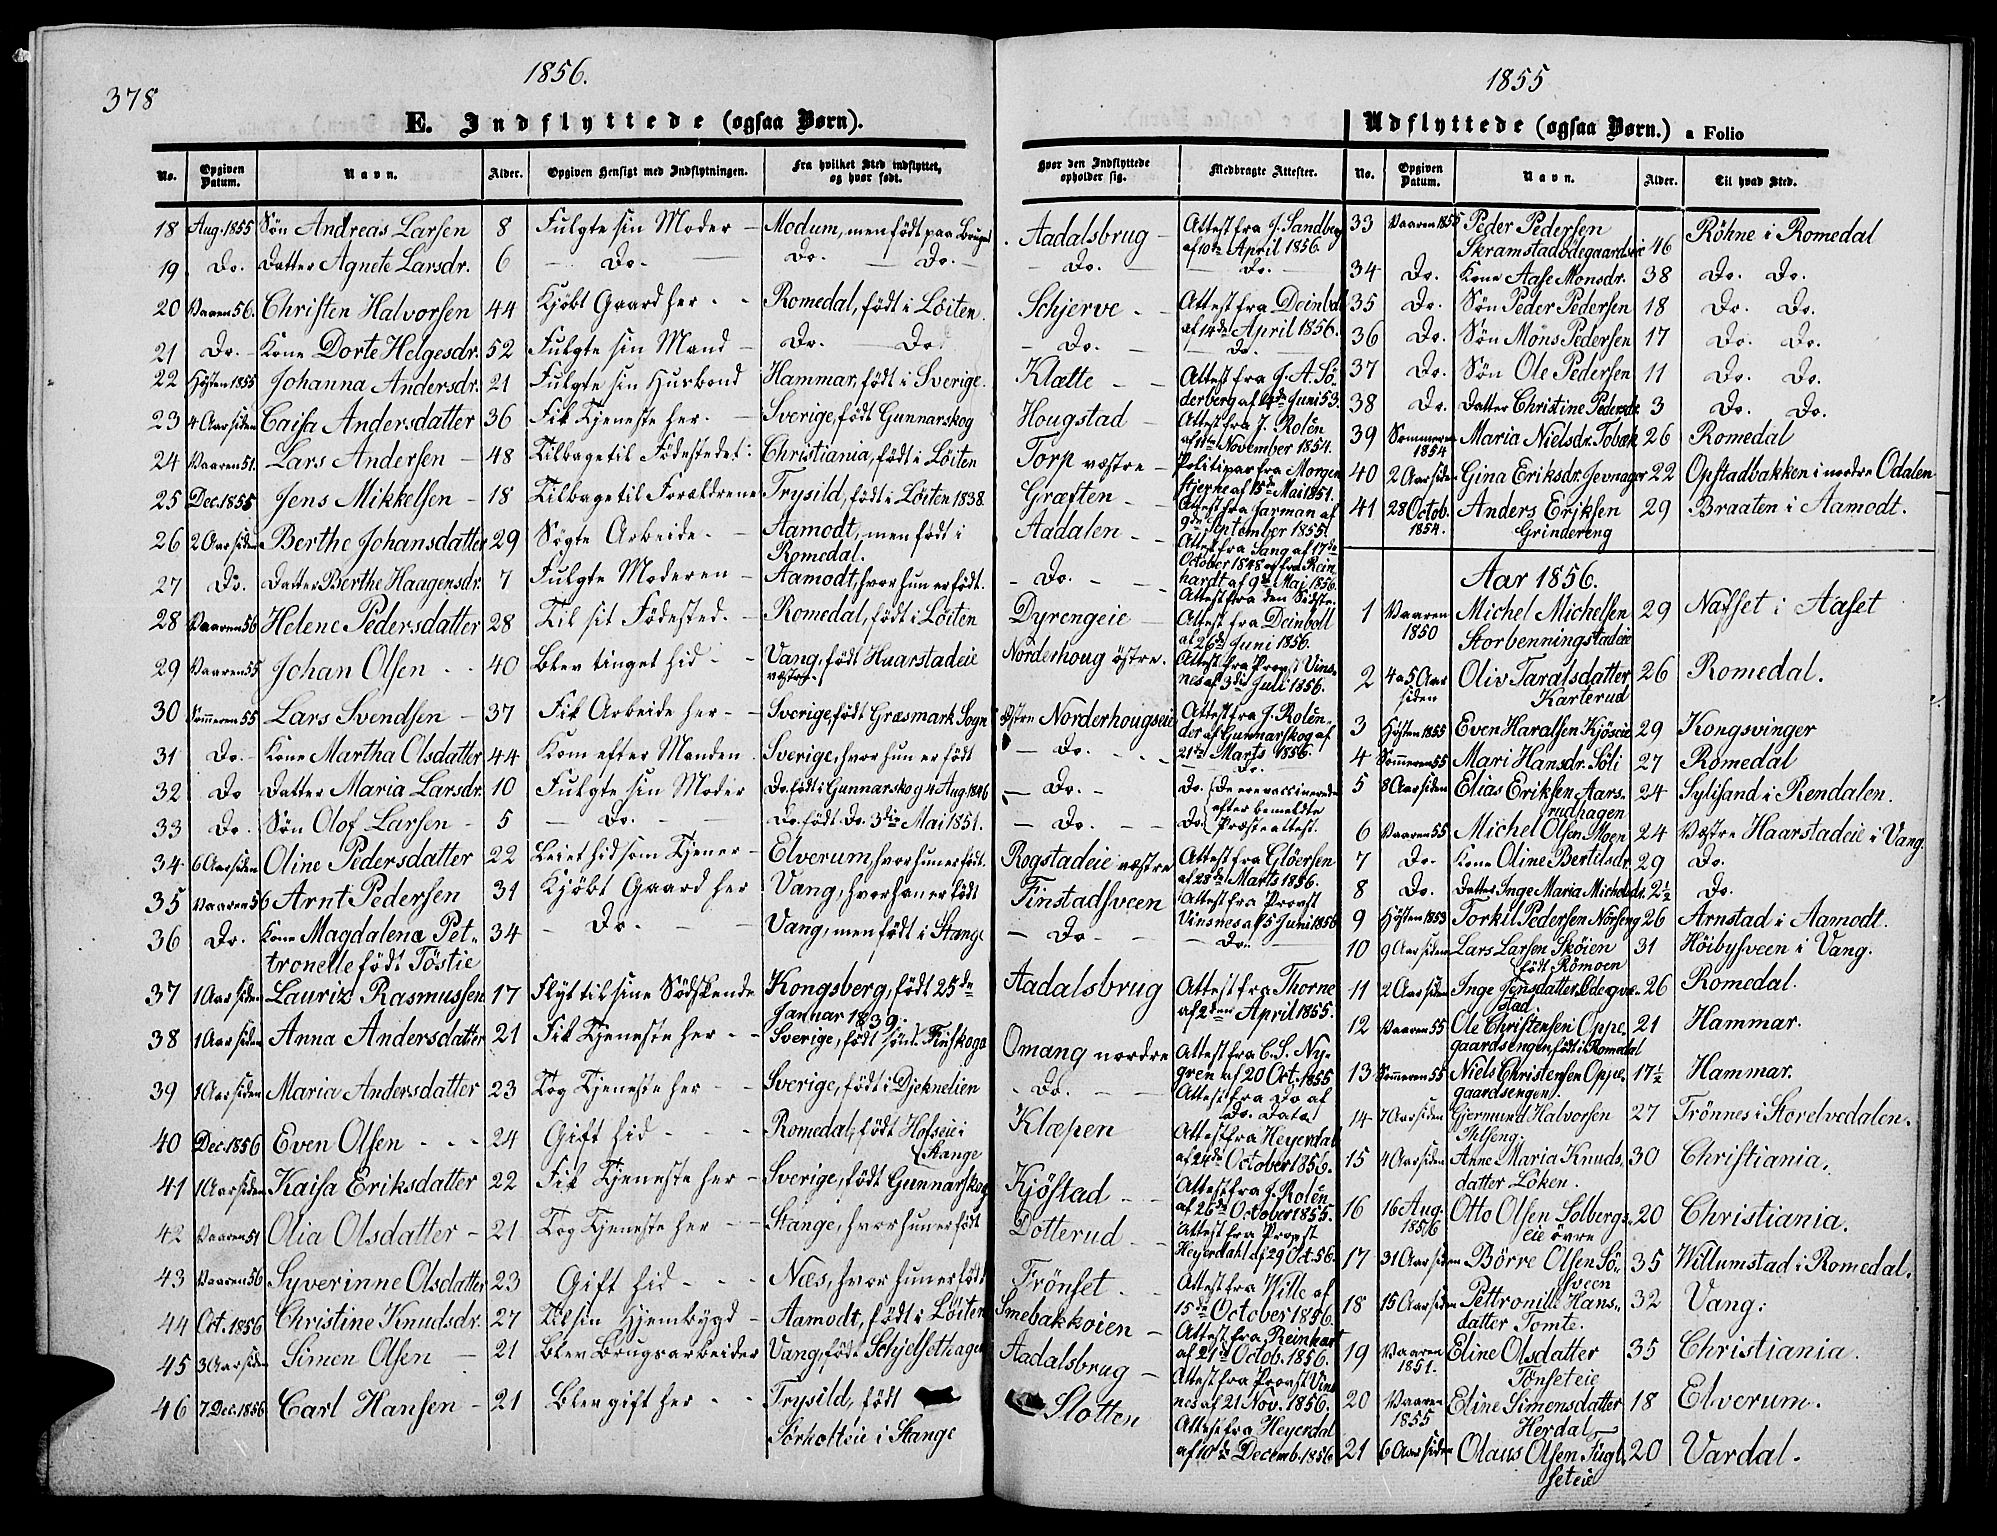 378
1856.
E. Indflyttede (ogsaa Børn).
No. Opgiven Datum. Navn. Alder. Opgiven Hensigt med Indflytningen. Fra hvilket Sted indflyttet, og hvor født. Hvor den Indflyttede opholder sig. Medbragte Attester.
18 Aug. 1855 Søn Andreas Larsen 8 Fulgte sin Moder – Modum, men født paa Bruget Aadalsbrug – Attest fra J. Sandberg af 10de April 1856.
19 Do. Datter Agnete Larsdr. 6 – Do. – Do. – Do. – – Do. – – Do. –
20 Vaaren 56. Christen Halvorsen 44 Kjøbt Gaard her – – Romedal, født i Løiten. Schjerve – – Attest fra Deinboll af 14de April 1856.
21 Do. – Kone Dorte Helgesdr. 52 Fulgte sin Mand – Do. – Do. – Do. – – Do. –
22 Høsten 1855 Johanna Andersdr. 21 Fulgte sin Husbond Hammar, født i Sverige. Klætte – – Attest fra J. A. Söderberg af 4de Juni 53.
23 4 Aar siden Caisa Andersdatter 36 Fik Tjeneste her. – Sverige, født Gunnarskog Hougstad – Attest fra J. Rolén af 11te November 1854.
24 Vaaren 51. Lars Andersen – 48 Tilbage til Fødestedet: Christiania, født i Løiten Torp væstre – Politipas fra Morgenstjerne af 15de Mai 1851.
25 Dec. 1855 Jens Mikkelsen – 18 Tilbage til Forældrene Trysild, født i Løiten 1838. Græften – Attest fra Jarman af 9de September 1855.
26 2 Aar siden Berthe Johansdatter 29 Søgte Arbeide. – Aamodt, men født i Romedal. Aadalen – – Attest fra Vang af 17de October 1848 og fra Reinhardt af 9de Mai 1856.
27 Do. Datter Berthe Haagensdr. 7 Fulgte Moderen – Aamodt, hvor hun er født. – Do. – – Attest fra den Sidste
28 Vaaren 56 Helene Pedersdatter 28 Til sit Fødested. – Romedal, født i Løiten Dyrengeie – Attest fra Deinboll af 26de Juni 1856.
29 Vaaren 55 Johan Olsen – – 40 Blev tinget hid – – Vang, født Haarstadeie væstre. Norderhoug östre. Attest fra Provst Vinsnes af 3die Juli 1856.
30 Sommeren 55 Lars Svendsen – 37 Fik Arbeide her – – Sverige, født Græsmark Sogn Östre Norderhougseie Attest fra J. Rolén – der af Gunnarskog af 21de Marts 1856.
31 Do. – Kone Martha Olsdatter 44 Kom efter Manden. Sverige, hvor hun er født – Do. – – – Do. –
32 Do Datter Maria Larsdr. 10 Fulgte sin Moder Do. født i Gunnarskog 4 Aug. 1846 – Do. – Do. (De ere vaccinerede
33 Do. Søn Olof Larsen – 5 – Do. – – Do. født Do. 3die Mai 1851. – Do. – Do. efter bemeldte Præsteattest.
34 6 Aar siden Oline Pedersdatter 22 Leiet hid som Tjener – Elverum, hvor hun er født. Rogstadeie væstre Attest fra Glöersen af 28de Marts 1856.
35 Vaaren 56 Arnt Pedersen 31 Kjøbt Gaard her Vang, hvor han er født Finstadsveen Attest fra Provst Vinsnes af 5 Juni 1856
36 Do. Kone Magdalena Pettronelle født Töstie 34 – Do. – – Vang, men født i Stange – Do – – Do. –
37 1 Aar siden Lauritz Rasmussen 17 Flyt til sine Sødskende Kongsberg, født 25de Januar 1839. Aadalsbrug Attest fra Thorne af 2den April 1855.
38 1 Aar siden Anna Andersdatter 21 Fik Tjeneste her – – Sverige, født söndr. Finskoga Omang nordre Attest fra C. S. Nygren af 20 Oct. 1855
39 1 Aar siden Maria Andersdatter 23 Tog Tjeneste her – – Sverige, født i Djeknelien – Do. – – Attest fra Do af Do. Dato.
40 Dec. 1856 Even Olsen – – – 24 Gift hid – – – Romedal, født Hofseie i Stange Klæpen Attest fra Heyerdal af 24de October 1856.
41 1 Aar siden Kaisa Eriksdatter 22 Fik Tjeneste her – Sverige, født Gunnarskog Kjöstad – – Attest fra J. Rolén af 26de October 1855.
42 Vaaren 51 Olia Olsdatter – 21 Tog Tjeneste her – – Stange, hvor hun er født Dotterud – – Attest fra Provst Heyerdahl d. 29 Oct. 56.
43 Vaaren 56 Syverinne Olsdatter 23 Gift hid – – – Næs, hvor hun er født Trönset – – Attest fra Wille af 15de October 1856.
44 Oct. 1856 Christine Knudsdr. 27 Til sin Hjembygd – Aamodt, født i Løiten Smebakkøien – Attest fra Reinhart af 21de Octob. 1856.
45 3 Aar siden Simen Olsen – 21 Blev Brugsarbeider Vang, født Schjelsethagen Aadalsbrug – Attest fra Provst Vinsnes af 21 Nov. 1856.
46 7 Dec. 1856 Carl Hansen – 21 Blev gift her – – Trysild, født Sörholteie i Stange Slotten Attest fra Heyerdal af 10de Decemb. 1856
1855
Udflyttede (ogsaa Børn.) a Folio
No. Opgiven Datum. Navn. Alder. Til hvad Sted.
33 Vaaren 1855 Peder Pedersen Skramstadödegaardseie 46 Röhne i Romedal
34 Do. Kone Aase Monsdr. 38 Do. Do.
35 Do. Søn Peder Pedersen 18 Do. Do.
36 Do. Søn Mons Pedersen 17 Do. Do.
37 Do. Søn Ole Pedersen 11 Do. Do.
38 Do. Datter Christine Pedersdr. 3 Do. Do.
39 Sommeren 1854 Maria Nielsdr. Tobæk 26 Romedal
40 2 Aar siden Gina Eriksdr. Jevnager 22 Opstadbakken i nordre Odalen
41 28 Octob. 1854. Anders Eriksen Grindereng 29 Braaten i Aamodt.
Aar 1856.
1 Vaaren 1850 Michel Michelsen Storbenningstadeie 29 Næsset i Aaset
2 4 a 5 Aar siden Oliv Taralsdatter Karterud 26 Romedal.
3 Høsten 1855 Even Haralsen Kjöseie 29 Kongsvinger
4 Sommeren 55 Mari Hansdr. Söli 27 Romedal
5 8 Aar siden Elias Eriksen Aarsrudhagen 24 Sylisand i Rendalen.
6 Vaaren 55 Michel Olsen Moen 24 Væstre Haarstadeie i Vang.
7 Do. Kone Oline Bertelsdr. 29 Do.
8 Do. Datter Inge Maria Michelsdr. 2½ Do.
9 Høsten 1853 Torkil Pedersen Nörseng 26 Arnstad i Aamodt.
10 9 Aar siden Lars Larsen Skøien født Römoen 31 Höibysveen i Vang.
11 2 Aar siden Inge Jensdatter Ödegvæstad 26 Romedal.
12 Vaaren 55 Ole Christensen Oppegaardsengen, født i Romedal 21 Hammar.
13 Sommeren 55 Niels Christensen Oppegaardsengen. 17½ Hammar.
14 7 Aar siden Gjermund Halvorsen Pelseng. 27 Trönnes i Storelvedalen.
15 4 Aar siden Anne Maria Knudsdatter Löken. 30 Christiania.
16 16 Aug. 1856 Otto Olsen Solbergseie övre 20 Christiania.
17 31 Aar siden Börre Olsen Sösveen 35 Willumstad i Romedal.
18 15 Aar siden Pettronille Hansdatter Tomte. 32 Vang.
19 Vaaren 1851. Eline Olsdatter Tönseteie 35 Christiania.
20 Vaaren 1855 Eline Simensdatter Herdal 18 Elverum.
21 6 Aar siden Olaus Olsen Fuglseteie 20 Vardal.